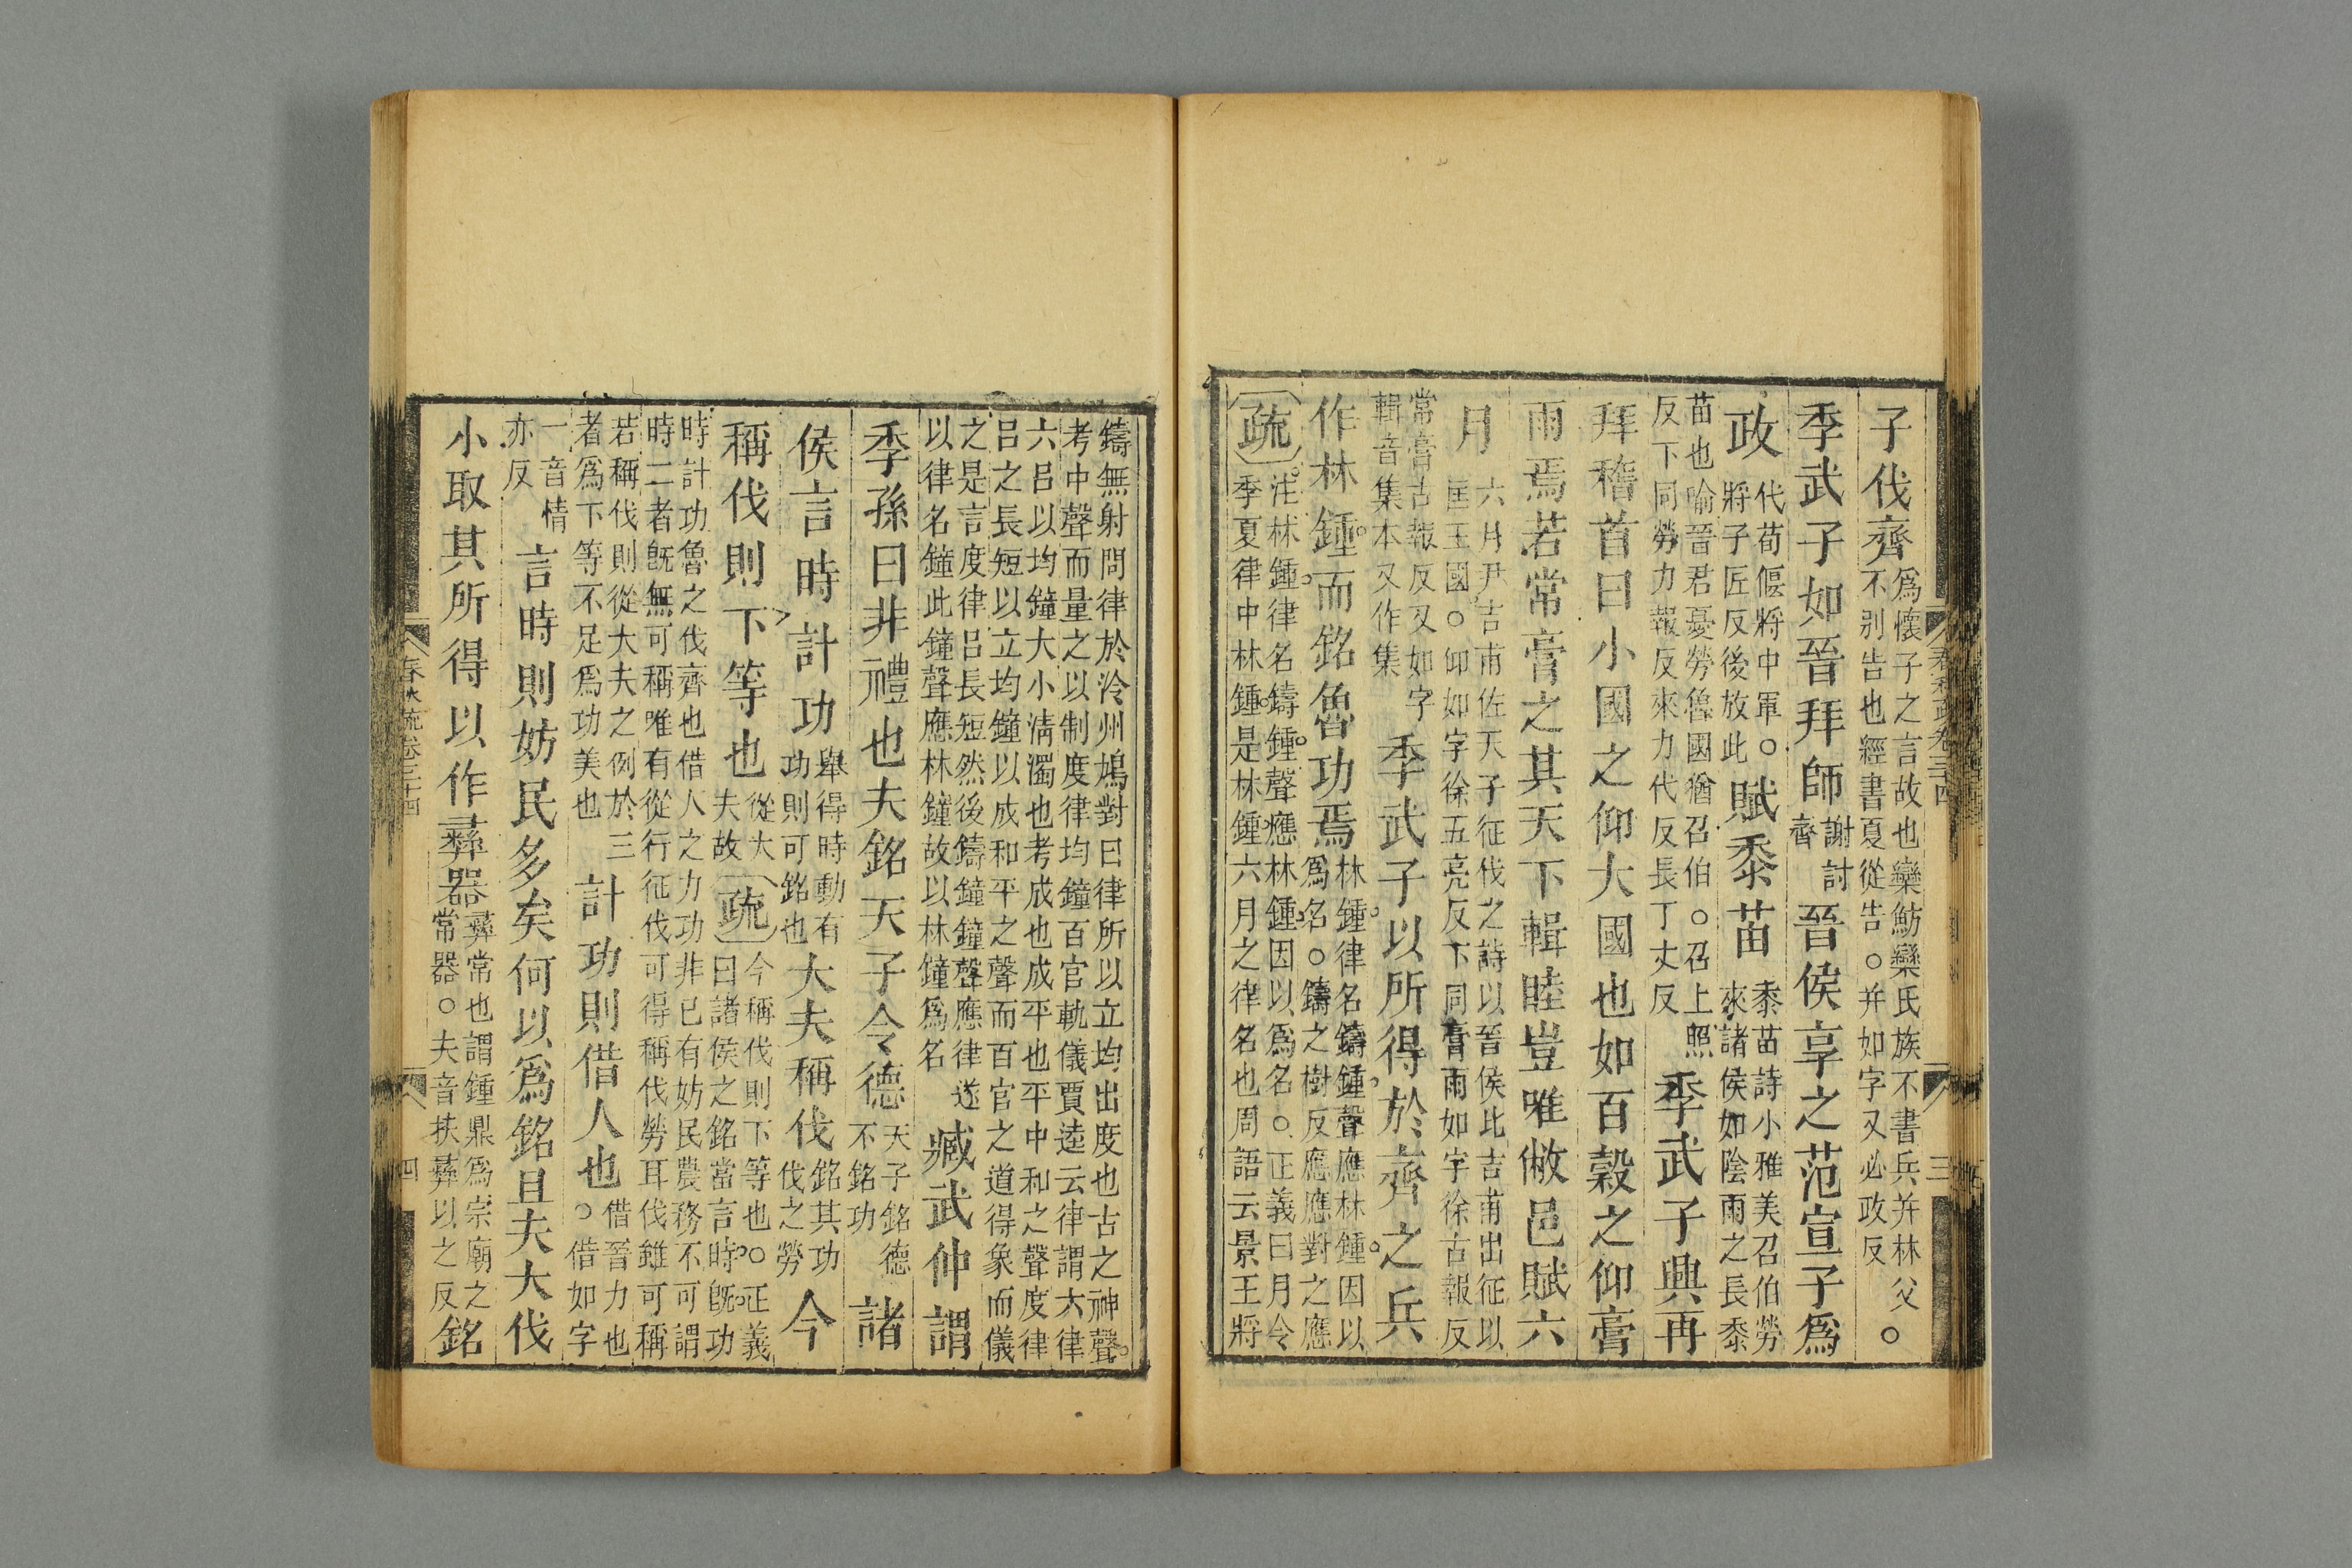 子伐齊爲懷子之言故也欒魴欒氏族不書兵并林父○不別告也經書夏從告○并如字又必政反
季武子如晉拜師謝討齊晉侯享之范宣子爲
政代荀偃將中軍○將子匠反後放此賦黍苗黍苗詩小雅美召伯勞來諸侯如陰雨之長黍
苗也喻晉君憂勞魯國猶召伯○召上照反下同勞力報反來力代反長丁丈反季武子興再
拜稽首曰小國之仰大國也如百穀之仰膏
雨焉若常膏之其天下輯睦豈唯敝邑賦六
月六月尹吉甫佐天子征伐之詩以晉侯比吉甫出征以匡王國○仰如字徐五亮反下同膏雨如字徐古報反
常膏古報反又如字輯音集本又作集季武子以所得於齊之兵
作林鍾而銘魯功焉林鍾律名鑄鍾聲應林鍾因以爲名○鑄之樹反應應對之應
疏注林鍾律名鑄鍾聲應林鍾因以爲名○正義曰月令季夏律中林鍾是林鍾六月之律名也周語云景王將
春秋疏卷三十四
三
鑄無射問律於泠州鳩對曰律所以立均出度也古之神聲
考中聲而量之以制度律均鐘百官軌儀賈逵云律謂六律
六呂以均鐘大小清濁也考成也成平也平中和之聲度律
呂之長短以立均鐘以成和平之聲而百官之道得象而儀
之是言度律呂長短然後鑄鐘鐘聲應律遂
以律名鐘此鐘聲應林鐘故以林鐘爲名臧武仲謂
季孫曰非禮也夫銘天子令德天子銘德不銘功諸
侯言時計功舉得時動有功則可銘也大夫稱伐銘其功伐之勞今
稱伐則下等也從大夫故疏今稱伐則下等也○正義曰諸侯之銘當言時既功
時計功魯之伐齊也借人之力功非已有妨民農務不可謂
時二者既無可稱唯有從行征伐可得稱伐勞耳伐雖可稱
若稱伐則從大夫之例於三者爲下等不足爲功美也計功則借人也借晉力也○借如字
一音情亦反言時則妨民多矣何以爲銘且夫大伐
小取其所得以作彝器彝常也謂鍾鼎爲宗廟之常器○夫音扶彝以之反銘
春秋疏卷三十四
四